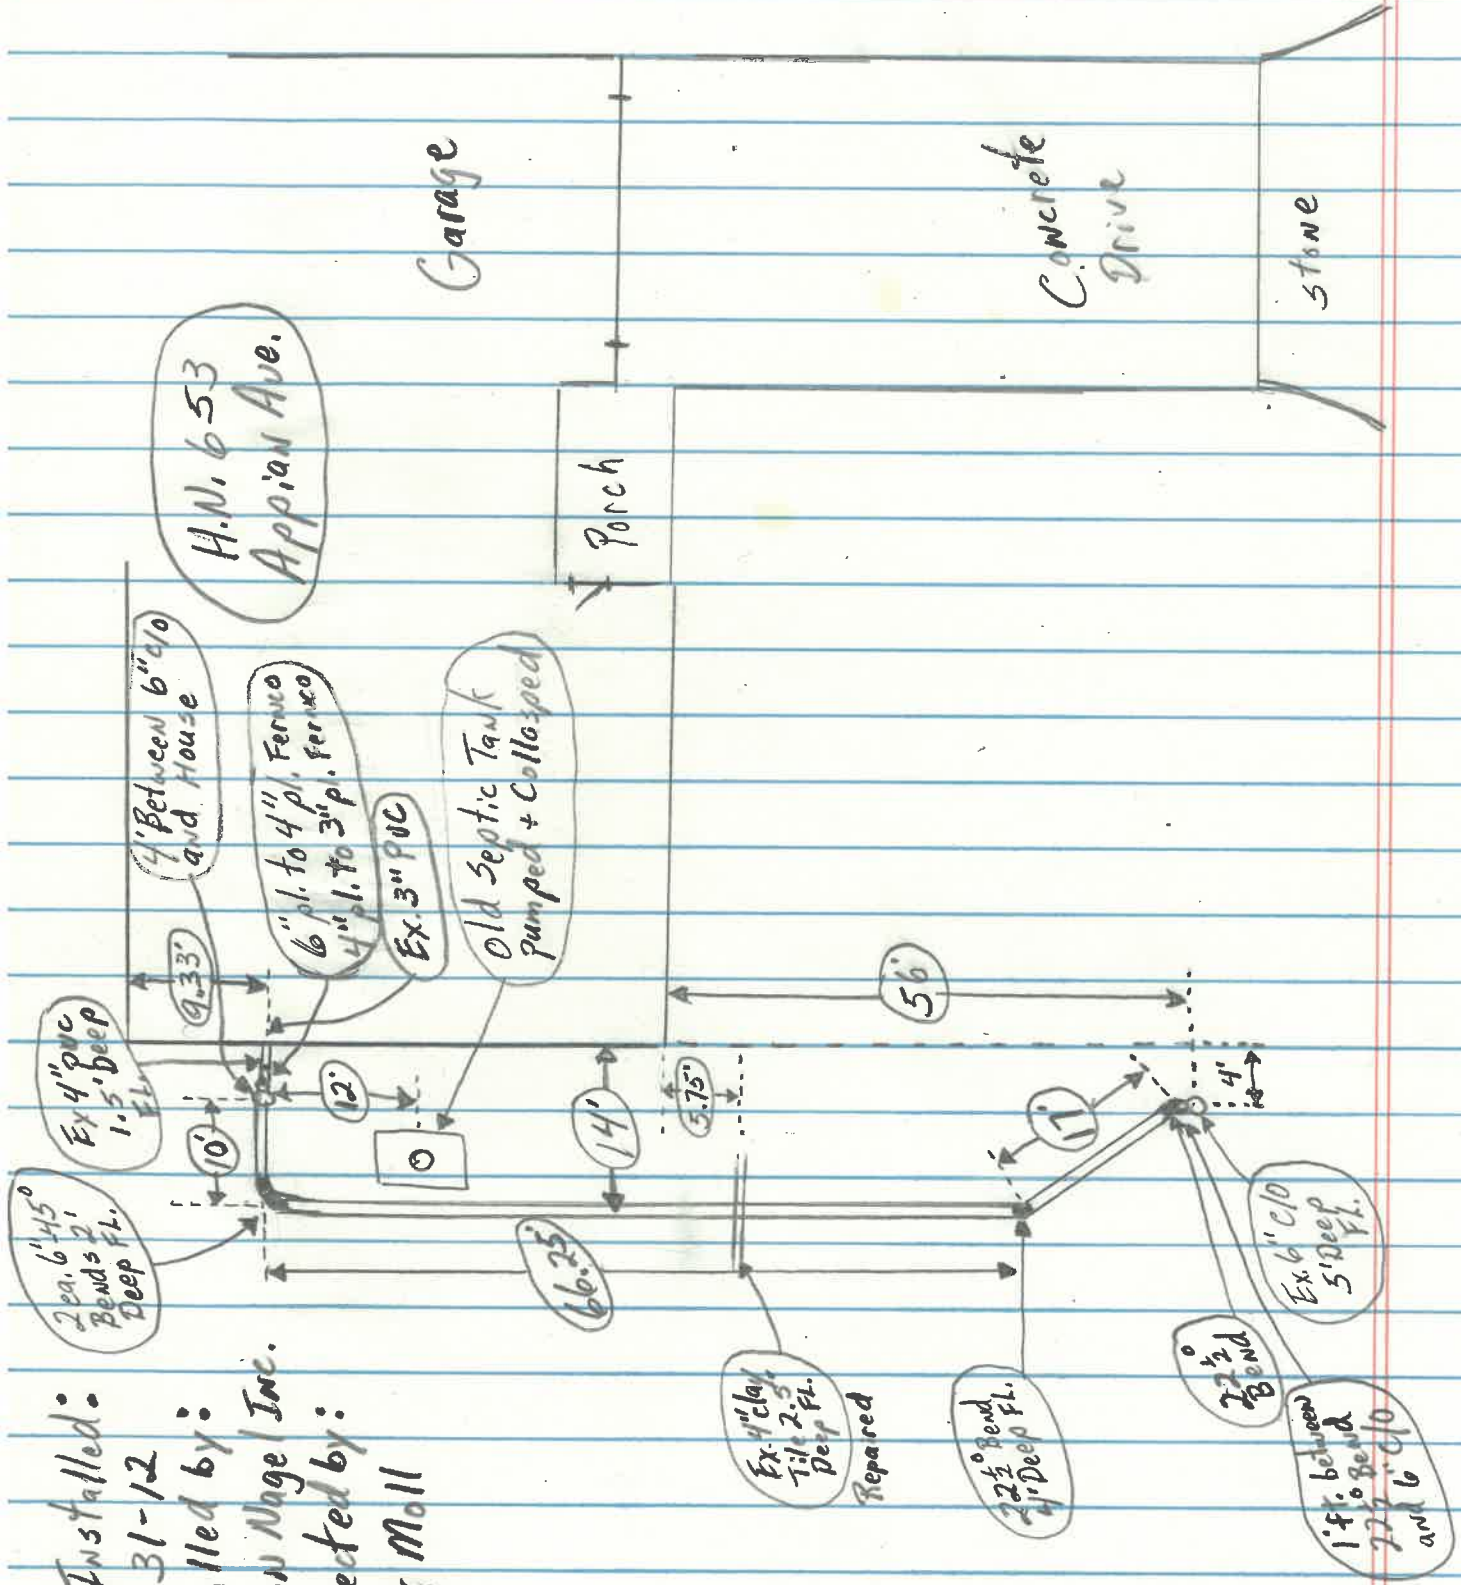 Installed:
31-12
lled by:
n Nagel Inc.
ected by:
Moll
2ea. 6" 45°
Bends 2'
Deep FL.
Ex 4" PVC
1.5' Deep
FL.
10'
9.33'
4' Between 6" c/o
and House
6" pl. to 4" pl. Fernco
4" pl. to 3" pl. Fernco
Ex. 3" PVC
12'
Old Septic Tank
Pumped + Collasped
H.N. 653
Appian Ave.
Garage
Porch
Concrete
Drive
stone
14'
5.75'
66.25'
56'
17'
4'
Ex. 4" Clay
Tile 2.5'
Deep FL.
Repaired
22½° Bend
4' Deep FL.
22½°
Bend
Ex. 6" C/O
5' Deep
FL.
1 ft. between
22½° Bend
and 6" c/o